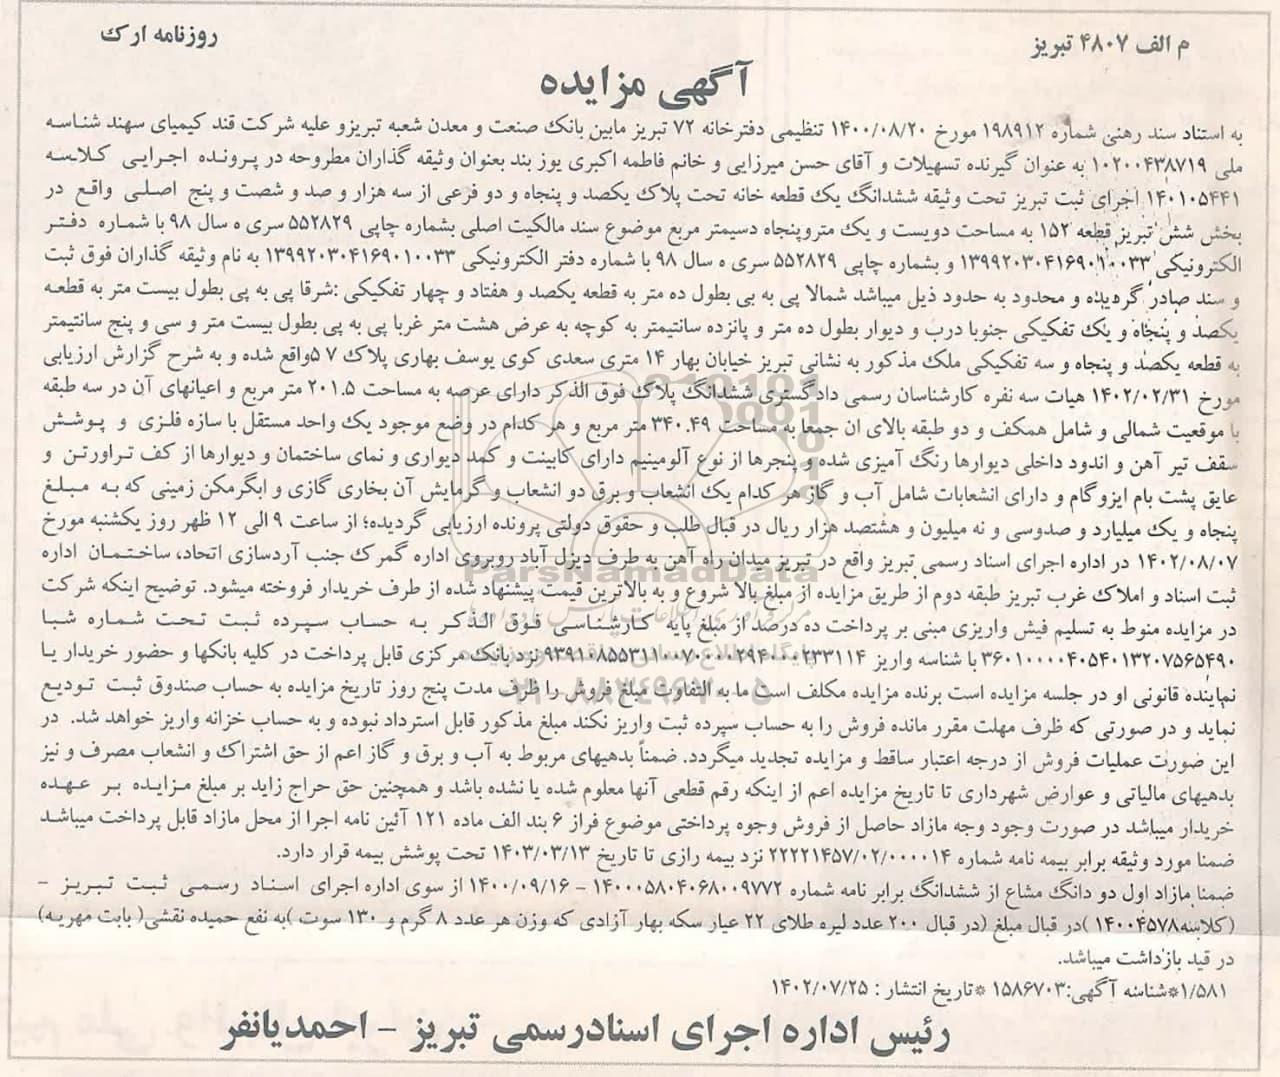 م الف ۴۸۰۷ تبریز
روزنامه ارک
آگهی مزایده
به استناد سند رهنی شماره ۱۹۸۹۱۲ مورخ ۱۴۰۰/۰۸/۲۰ تنظیمی دفترخانه ۷۲ تبریز مابین بانک صنعت و معدن شعبه تبریزو علیه شرکت قند کیمیای سهند شناسه
ملی ۱۰۲۰۰۴۳۸۷۱۹ به عنوان گیرنده تسهیلات و آقای حسن میرزایی و خانم فاطمه اکبری یوز بند بعنوان وثیقه گذاران مطروحه در پرونده اجرایی کلاسه
۱۴۰۱۰۵۴۴۱ اجرای ثبت تبریز تحت وثیقه ششدانگ یک قطعه خانه تحت پلاک یکصد و پنجاه و دو فرعی از سه هزار و صد و شصت و پنج اصلی واقع در
بخش شش تبریز قطعه ۱۵۲ به مساحت دویست و یک متروپنجاه دسیمتر مربع موضوع سند مالکیت اصلی بشماره چاپی ۵۵۲۸۲۹ سری ه سال ۹۸ با شماره دفتر
الکترونیکی ۱۳۹۹۲۰۳۰۴۱۶۹۰۱۰۰۳۳ و بشماره چاپی ۵۵۲۸۲۹ سری ه سال ۹۸ با شماره دفتر الکترونیکی ۱۳۹۹۲۰۳۰۴۱۶۹۰۱۰۰۳۳ به نام وثیقه گذاران فوق ثبت
و سند صادر گردیده و محدود به حدود ذیل میباشد شمالا پی به بی بطول ده متر به قطعه یکصد و هفتاد و چهار تفکیکی :شرقا پی به پی بطول بیست متر به قطعه
یکصد و پنجاه و یک تفکیکی جنوبا درب و دیوار بطول ده متر و پانزده سانتیمتر به کوچه به عرض هشت متر غربا پی به پی بطول بیست متر و سی و پنج سانتیمتر
به قطعه یکصد و پنجاه و سه تفکیکی ملک مذکور به نشانی تبریز خیابان بهار ۱۴ متری سعدی کوی یوسف بهاری پلاک ۵۷واقع شده و به شرح گزارش ارزیابی
مورخ ۱۴۰۲/۰۲/۳۱ هیات سه نفره کارشناسان رسمی دادگستری ششدانگ پلاک فوق الذکر دارای عرصه به مساحت ۲۰۱.۵ متر مربع و اعیانهای آن در سه طبقه
با موقعیت شمالی و شامل همکف و دو طبقه بالای ان جمعا به مساحت ۳۴۰.۴۹ متر مربع و هر کدام در وضع موجود یک واحد مستقل با سازه فلزی و پوشش
سقف تیر آهن و اندود داخلی دیوارها رنگ آمیزی شده و پنجرها از نوع آلومینیم دارای کابینت و کمد دیواری و نمای ساختمان و دیوارها از کف تراورتن و
عایق پشت بام ایزوگام و دارای انشعابات شامل آب و گاز هر کدام یک انشعاب و برق دو انشعاب و گرمایش آن بخاری گازی و ابگرمکن زمینی که به مبلغ
پنجاه و یک میلیارد و صدوسی و نه میلیون و هشتصد هزار ریال در قبال طلب و حقوق دولتی پرونده ارزیابی گردیده؛ از ساعت ۹ الی ۱۲ ظهر روز یکشنبه مورخ
۱۴۰۲/۰۸/۰۷ در اداره اجرای اسناد رسمی تبریز واقع در تبریز میدان راه آهن به طرف دیزل آباد روبروی اداره گمرک جنب آردسازی اتحاد، ساختمان اداره
ثبت اسناد و املاک غرب تبریز طبقه دوم از طریق مزایده از مبلغ بالا شروع و به بالاترین قیمت پیشنهاد شده از طرف خریدار فروخته میشود. توضیح اینکه شرکت
در مزایده منوط به تسلیم فیش واریزی مبنی بر پرداخت ده درصد از مبلغ پایه کارشناسی فوق الذکر به حساب سپرده ثبت تحت شماره شبا
۳۶۰۱۰۰۰۰۴۰۵۴۰۱۳۲۰۷۵۶۵۴۹۰ با شناسه واریز ۹۳۹۱۰۸۵۵۳۱۱۰۰۷۰۰۰۰۲۹۴۰۰۰۲۳۳۱۱۴ نزد بانک مرکزی قابل پرداخت در کلیه بانکها و حضور خریدار یا
نماینده قانونی او در جلسه مزایده است برنده مزایده مکلف است ما به التفاوت مبلغ فروش را ظرف مدت پنج روز تاریخ مزایده به حساب صندوق ثبت تودیع
نماید و در صورتی که ظرف مهلت مقرر مانده فروش را به حساب سپرده ثبت واریز نکند مبلغ مذکور قابل استرداد نبوده و به حساب خزانه واریز خواهد شد. در
این صورت عملیات فروش از درجه اعتبار ساقط و مزایده تجدید میگردد. ضمناً بدهیهای مربوط به آب و برق و گاز اعم از حق اشتراک و انشعاب مصرف و نیز
بدهیهای مالیاتی و عوارض شهرداری تا تاریخ مزایده اعم از اینکه رقم قطعی آنها معلوم شده یا نشده باشد و همچنین حق حراج زاید بر مبلغ مزایده بر عهده
خریدار میباشد در صورت وجود وجه مازاد حاصل از فروش وجوه پرداختی موضوع فراز ۶ بند الف ماده ۱۲۱ آئین نامه اجرا از محل مازاد قابل پرداخت میباشد
ضمنا مورد وثیقه برابر بیمه نامه شماره ۲۲۲۲۱۴۵۷/۰۲/۰۰۰۰۱۴ نزد بیمه رازی تا تاریخ ۱۴۰۳/۰۳/۱۳ تحت پوشش بیمه قرار دارد.
ضمنا مازاد اول دو دانگ مشاع از ششدانگ برابر نامه شماره ۱۴۰۰۰۵۸۰۴۰۶۸۰۰۹۷۷۲ - ۱۴۰۰/۰۹/۱۶ از سوی اداره اجرای اسناد رسمی ثبت تبریز -
(کلاسه۱۴۰۰۴۵۷۸ )در قبال مبلغ (در قبال ۲۰۰ عدد لیره طلای ۲۲ عیار سکه بهار آزادی که وزن هر عدد ۸ گرم و ۱۳۰ سوت )به نفع حمیده نقشی( بابت مهریه)
در قید بازداشت میباشد.
۱/۵۸۱*شناسه آگهی:۱۵۸۶۷۰۳ *تاریخ انتشار : ۱۴۰۲/۰۷/۲۵
رئیس اداره اجرای اسنادرسمی تبریز - احمدیانفر
ParsNamadData